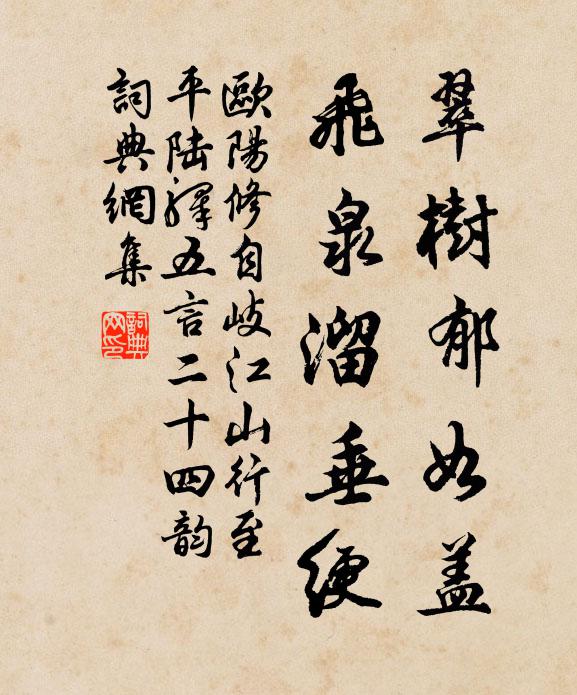 翠樹郁如盖
飛泉溜垂綆
歐陽修自岐江山行至
平陆驛五言二十四韵
詞典網集
詞典網印